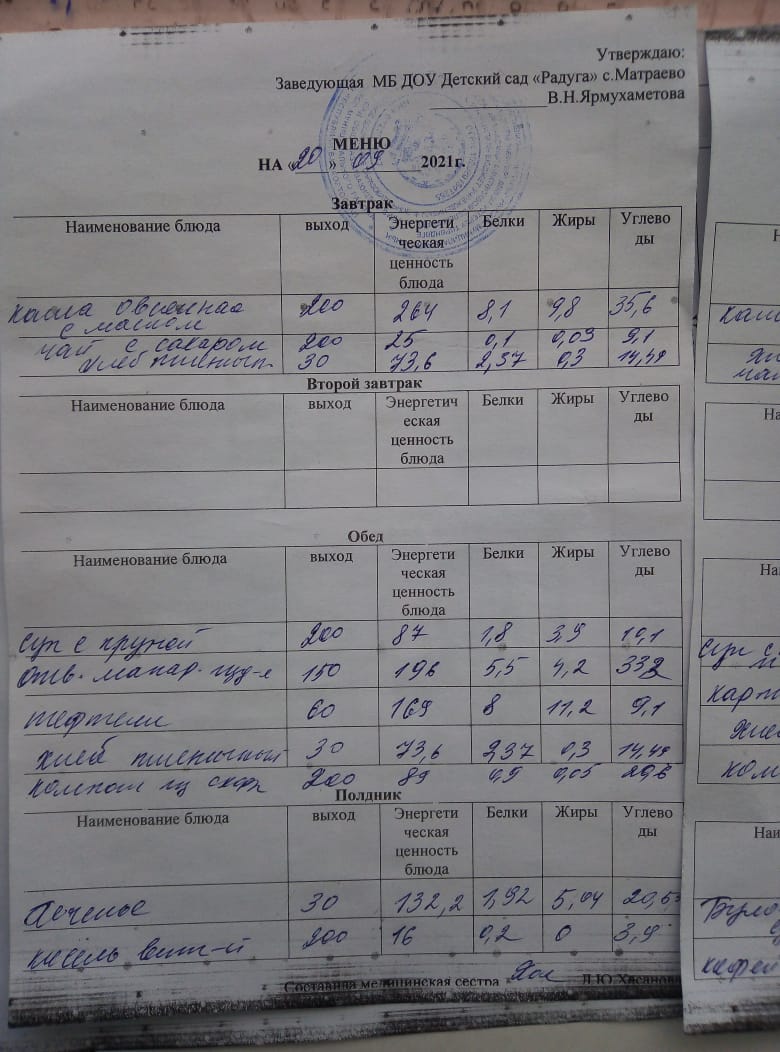 Утверждаю:
Заведующая МБ ДОУ Детский сад «Радуга» с.Матраево
В.Н.Ярмухаметова
МЕНЮ
НА «20» 09 2021г.
Завтрак
Наименование блюда выход Энергети ческая ценность блюда Белки Жиры Углево ды
каша овсянная с маслом 200 264 8,1 9,8 35,6
чай с сахаром 200 25 0,1 0,03 9,1
хлеб пшеный 30 73,6 2,37 0,3 14,49
Второй завтрак
Наименование блюда выход Энергетич еская ценность блюда Белки Жиры Углево ды
Обед
Наименование блюда выход Энергети ческая ценность блюда Белки Жиры Углево ды
суп с крупой 200 87 1,8 3,9 10,1
отв. макар. изд-я 150 196 5,5 4,2 33,2
тефтели 60 169 8 11,2 9,1
хлеб пшеничный 30 73,6 2,37 0,3 14,49
компот из сухфр 200 89 0,05
Полдник
Наименование блюда выход Энергети ческая ценность блюда Белки Жиры Углево ды
Печенье 30 132,2 1,92 5,04
кисель вит-й 200 16 0,2 0 3,9
Составила медицинская сестра Л.Ю.Хасанова